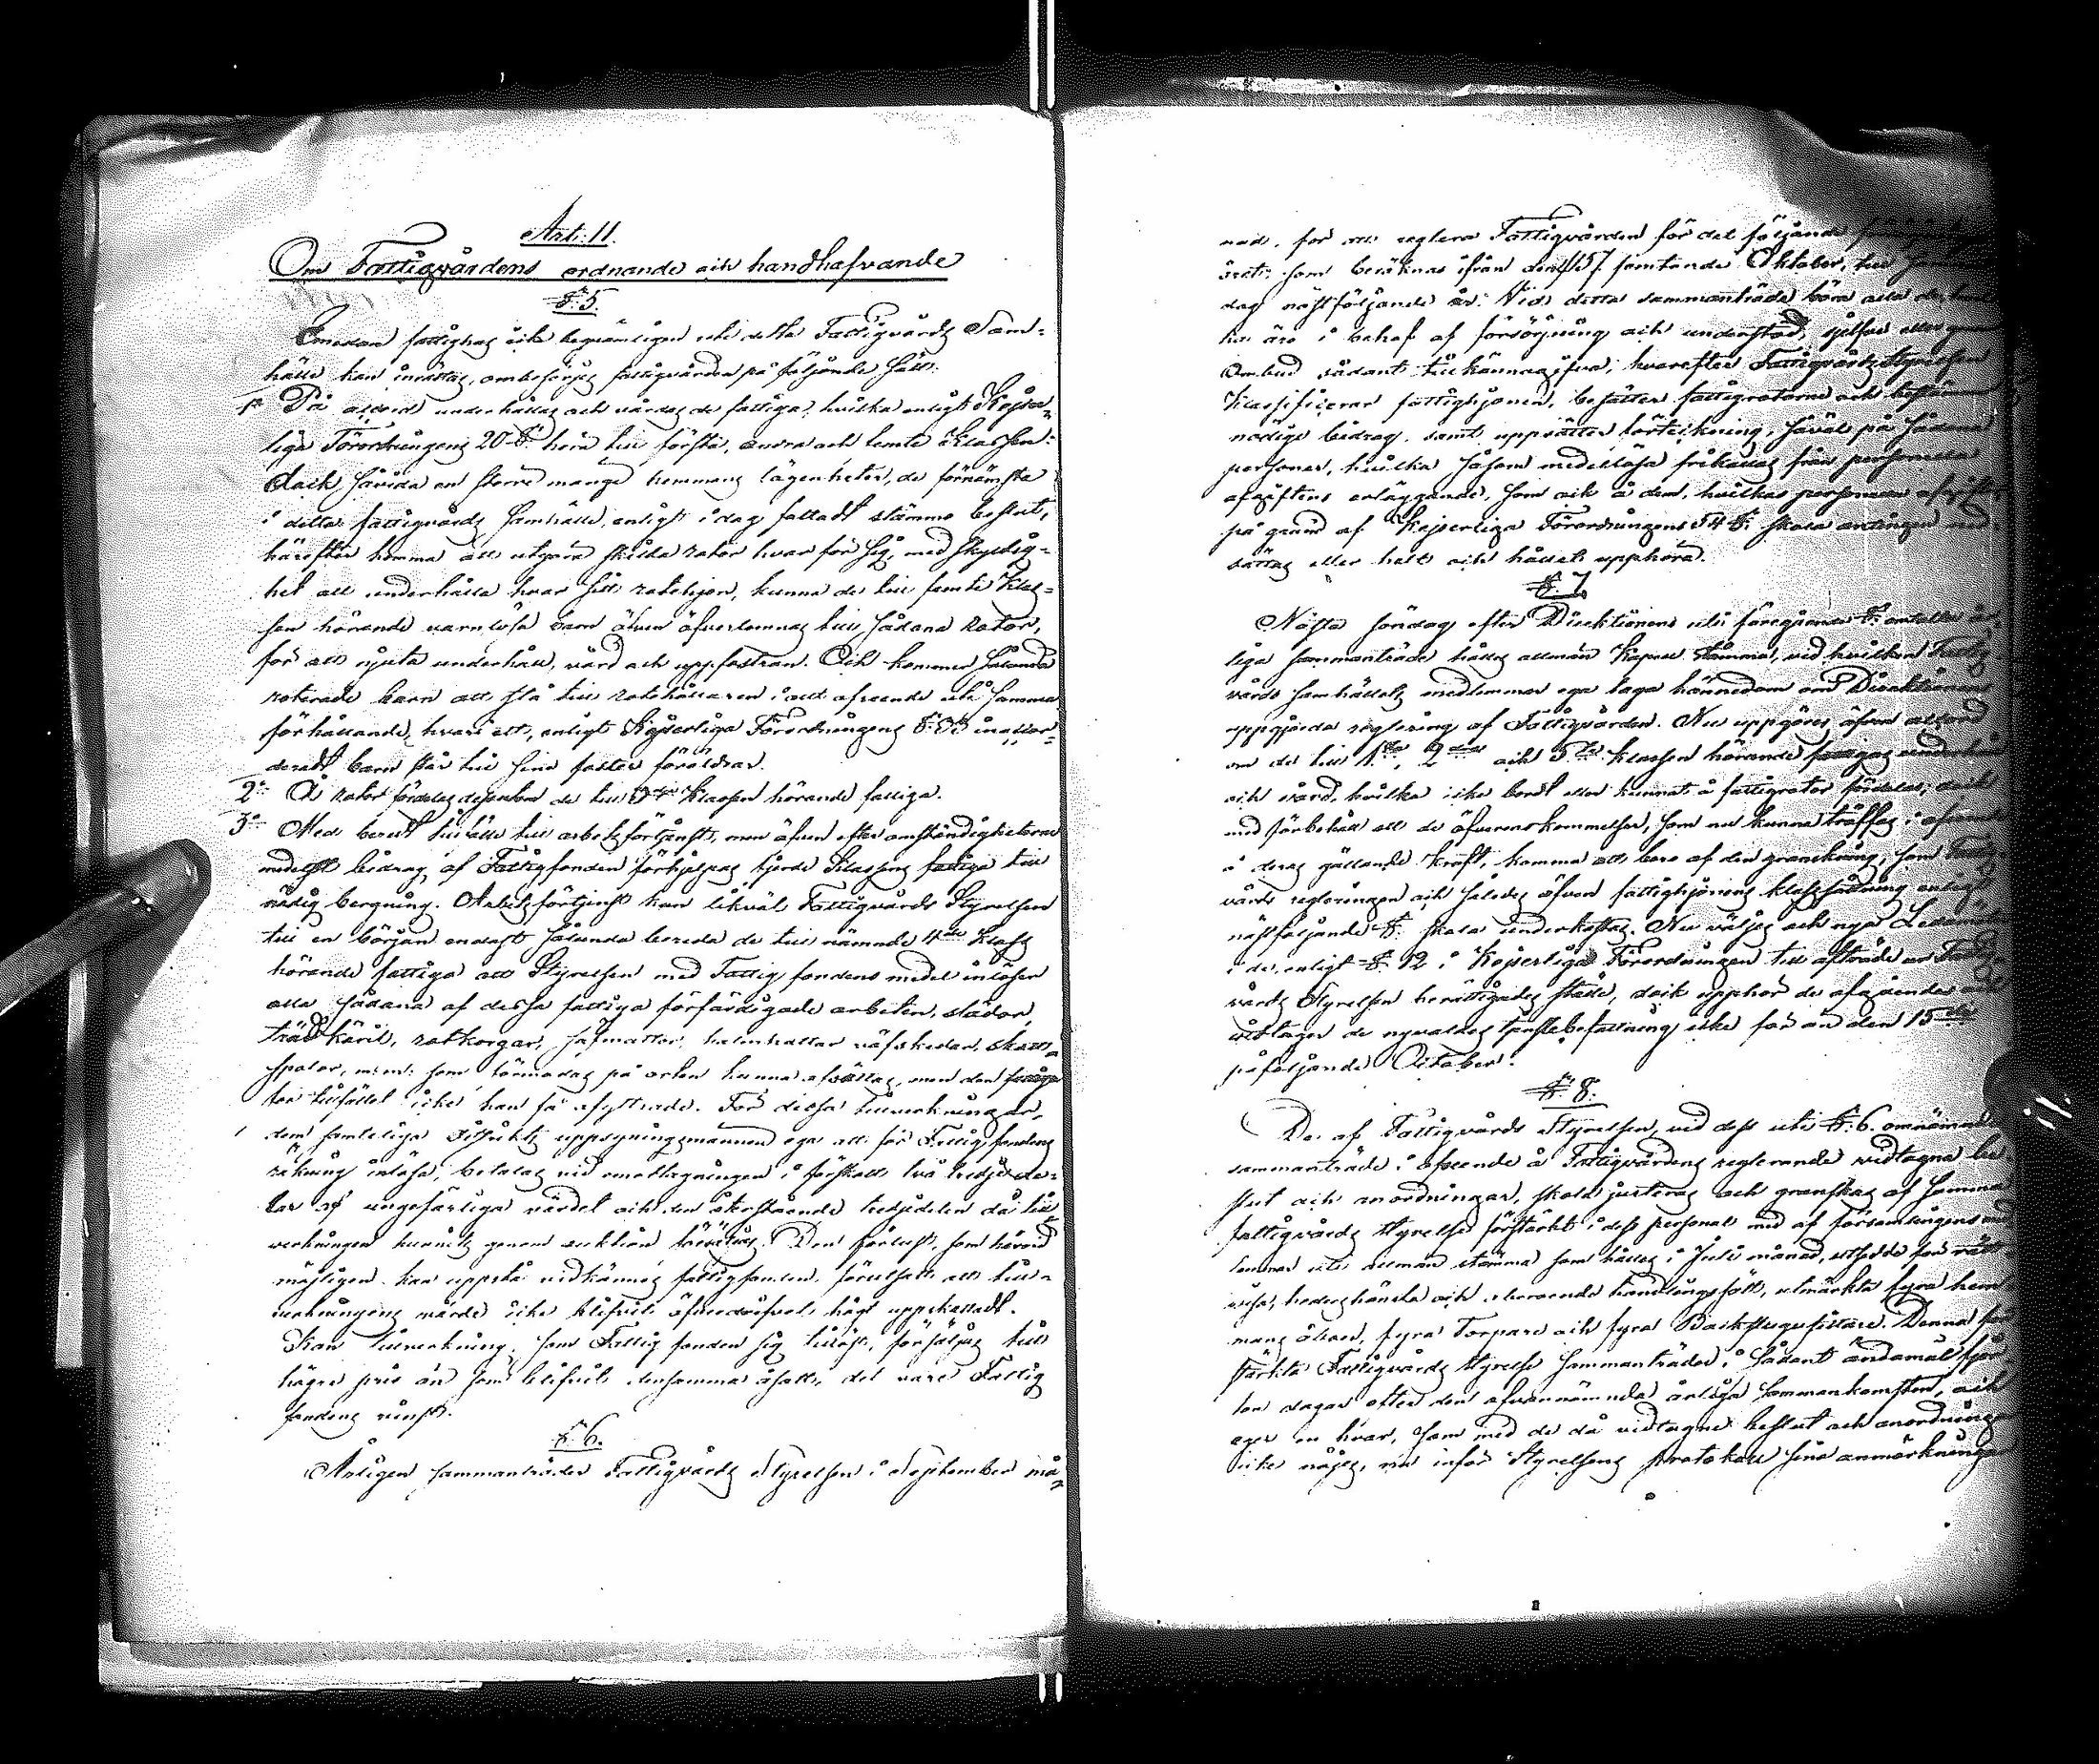 Art: II.
Om Fattigvårdens ordnande och handhafvande
§ 5.
Emedan fattighus icke beqvämligen uti detta Fattigvårds Sam-
hälle kan inrättas, ombesörjes fattigvården på följande sätt:
1o På åldern underhållas och vårdas de fattiga, hvilka enligt Kejser-
liga Förordningens 20 §. höra till första, andra och femte Klassen.
Dock såvida en större mängd hemmans lägenheter, de förnämsta
i detta fattigvårds samhälle, enligt i dag fattadt stämmo beslut,
härefter komma att utgöra skilda rotor hvar för sig, med skyldig-
het att underhålla hvar sitt rotehjon, kunna de till femte Klas-
sen hörande varnlösa barn äfven öfverlemnas till sådana rotor,
för att njuta underhåll, vård och uppfostran. Och kommer sålunda
roterade barn att stå till rotehållaren i allt afseende uti samma
förhållande, hvari ett, enligt Kejserliga Förordningens § 33 inackor-
deradt barn står till sina foster föräldrar.
2o Å rotor fördelas dessutom de till 3dje Klassen hörande fattiga.
3o Med beredt tillfälle till arbetsförtjenst, men äfven efter omständigheterna
medelst bidrag af Fattigfonden förhjelpas fjerde Klassens fattiga till
nödig bergning. Arbetsförtjenst kan likväl Fattigvårds Styrelsen
till en början endast sålunda bereda de till nämnde 4de Klass
hörande fattiga att Styrelsen med Fattig fondens medel inlöser
alla sådana af dessa fattiga förfärdigade arbeten, slädor,
trädkäril, rotkorgar, säfmattor, halmhattar väfskedar,
spolar, m:m: som förmodas på orten kunna afsättas, men den fattige
för tillfället icke kan få afyttrade. För dessa tillverkningar,
dem samteliga Distrikts uppsyningsmännen ega att för Fattig fondens
räkning inlösa, betalas vid emottagningen i förskott två tredjede-
lar af ungefärliga värdet och den återstående tredjedelen då till
verkningen hunnits genom auktion försäljas. Den förlust, som härvid
möjligen kan uppstå vidkännes fattigfonden, förutsatt att till-
verkningens värde icke blifvit öfverdrifvet högt uppskattadt.
Kan tillverkning, som Fattig fonden sig tillöst, försäljas till
högre pris än som blifvit densamma åsatt, det vare Fattig
fondens vinst.
§ 6.
Årligen sammanträder Fattigvårds Styrelsen i September må-
nad, för att reglera Fattigvården för det följande
året, som beräknas ifrån den 15 femtonde Oktober, till samma
dag nästföljande år. Vid detta sammanträde böra alla de, hvil
ka äro i behof af försörjning och understöd, sjelfve eller genom
Ombud sådant tillkännagifva, hvarefter Fattigvårds Styrelsen
Klassificierar fattighjonen, besätter fattigrotarne och bestämmer
nödige bidrag, samt uppsätter förteckning, såväl på sådana
personer, hvilka såsom medellösa frikallas från personella
afgiftens erläggande, som ock å dem, hvilkas personella afgifter
på grund af Kejserliga Förordningens 54 §. skola antingen ned
sättas eller helt och hållet upphöra.
§. 7.
Nästa söndag efter Direktionens uti föregående §. omtalta år
liga sammanträde hålles allmän Kapell stämma, vid hvilken Fattig
vårds samhällets medlemmar ega taga kännedom om Direktionens
uppgjorda reglering af Fattigvården. Nu uppgöres äfven ackord
om de till 1sta, 2dra och 5te Klassen hörande fattigas underhåll
och vård, hvilka icke bordt eller kunnat å fattigrotor fördelas; dock
med förbehåll att de öfverenskommelser, som nu kunna träffas i afseende
å deras gällande kraft, komma att bero af den granskning, som Fattig
vårds regleringen och således äfven fattighjonens klassificering enligt
nästföljande §. skola underkastas. Nu väljes ock nya Ledamöter
i de, enligt § 12 i Kejserliga Förordningen till afträde ur Fattig
vårds Styrelsen berättigades ställe, dock upphör de afgående och
vidtager de nyvaldes tjenstebefattning icke förr än den 15de
påföljande October.
§. 8.
De af Fattigvårds Styrelsen, vid dess uti §. 6. omnämnde
sammanträde i afseende å Fattigvårdens reglerande vidtagna be
slut och anordningar, skola justeras och granskas af samma
fattigvårds styrelse förstärkt i dess personal med af församlingens med
lemmar uti allmän stämma som hålles i Juli månad, utsedde för rätt
visa, hederskänsla och oberoende handlingssätt, utmärkta fyra hem
mans åboer, fyra Torpare och fyra Backstugusittare. Denna för
stärkta Fattigvårds styrelse sammanträder i sådant ändamål fjor
ton dagar efter den ofvannämnda årliga sammankomsten, och
eger en hvar, som med de då vidtagne beslut och anordningar
icke nöjes, nu inför Styrelsens protokoll sina anmärkningar